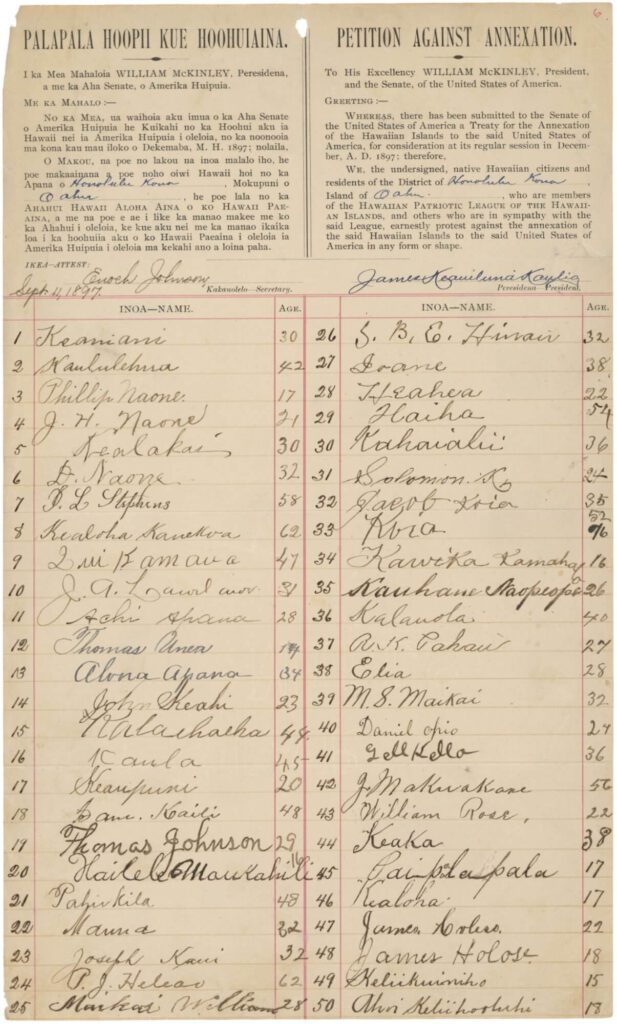 6
PALAPALA HOOPII KUE HOOHUIAINA.
I ka Mea Mahaloia WILLIAM McKINLEY, Peresidena,
a me ka Aha Senate, o Amerika Huipuia.
ME KA MAHALO:—
NO KA MEA, ua waihoia aku imua o ka Aha Senate
o Amerika Huipuia he Kuikahi no ka Hoohui aku ia
Hawaii nei ia Amerika Huipuia i oleloia, no ka noonooia
ma kona kau mau iloko o Dekemaba, M. H. 1897; nolaila,
O MAKOU, na poe no lakou na inoa malalo iho, he
poe makaainana a poe noho oiwi Hawaii hoi no ka
Apana o Honolulu Kona, Mokupuni o
Oahu, he poe lala no ka
AHAHUI HAWAII ALOHA AINA O KO HAWAII PAE-
AINA, a me na poe e ae i like ka manao makee me ko
ka Ahahui i oleloia, ke kue aku nei me ka manao ikaika
loa i ka hoohuiia aku o ko Hawaii Paeaina i oleloia ia
Amerika Huipuia i oleloia ma kekahi ano a loina paha.
IKEA—ATTEST:
Enoch Johnson
Sept. 11, 1897.
Kakauolelo—Secretary.
PETITION AGAINST ANNEXATION.
To His Excellency WILLIAM McKINLEY, President,
and the Senate, of the United States of America.
GREETING:—
WHEREAS, there has been submitted to the Senate of the
United States of America a Treaty for the Annexation
of the Hawaiian Islands to the said United States of
America, for consideration at its regular session in Decem-
ber, A. D. 1897; therefore,
WE, the undersigned, native Hawaiian citizens and
residents of the District of Honolulu Kona,
Island of Oahu, who are members
of the HAWAIIAN PATRIOTIC LEAGUE OF THE HAWAII-
AN ISLANDS, and others who are in sympathy with the
said League, earnestly protest against the annexation of
the said Hawaiian Islands to the said United States of
America in any form or shape.
James Keauiluna Kaulia
Peresidena—President.
INOA—NAME. AGE.
1 Keaniani 30
2 Kaululehua 42
3 Phillip Naone. 17
4 J. H. Naone 21
5 Kealakai 30
6 D. Naone 32
7 L Stephens 58
8 Kealoha 62
9 Kamaua 47
10 J. A. 31
11 Achi Apana 28
12 Thomas
13 Alona Apana 34
14 John Keahi 23
15 Kalachaeha 44
16 Kaula 45
17 Keaupuni 20
18 Kaili 48
19 Thomas Johnson 29
20 Haili Maukahili
21 48
22 Manna
23 Joseph Kaui 32
24 P. J. Heleao 62
25 William 28
INOA—NAME. AGE.
26 S. B. E. 32
27 Ioane 38
28 Heahea 22
29 Haiha 54
30 Kahaialii 36
31 Solomon. K.
32 Jacob 35
33
34 Kawika Kamaha 16
35 Kauhane Naopeope 26
36 Kalauola 40
37 A. K. Pahau 27
38 Elia 28
39 M. S. Maikai 32
40 Daniel opio
41 36
42 J. Makuakane 56
43 William Rose, 22
44 Keaka 38
45 Paipalapala 17
46 Kealoha 17
47 James 22
48 James Holose 18
49 15
50 Ahoi Keliihooluhi 18